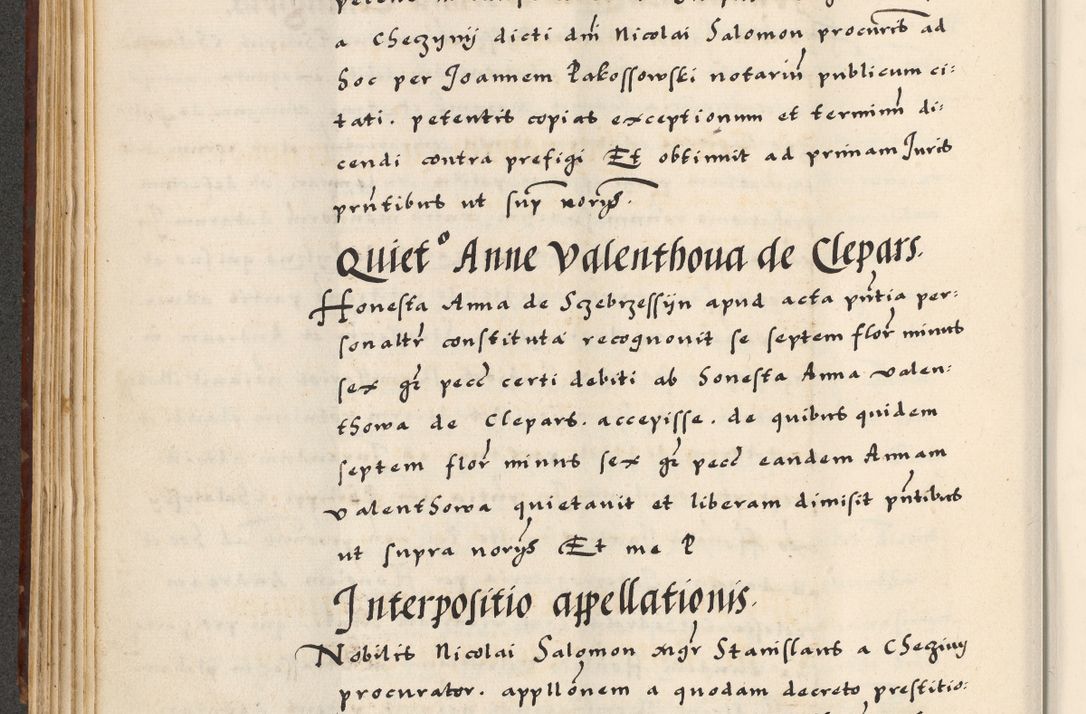 a Checzynÿ dicti dni Nicolai Salomon procuris ad
hoc per Joannem Rakossowski notariu publicum ci:
tati. petentis copias exceptionum et terminu di:
cendi contra prefigi Et obtinuit ad primam Juris
pntibus ut sup norijs.
Quiet° Anne Valenthoua de Clepars.
Honesta Anna de Sczebrzessÿn apud acta pntia per:
sonaltr constituta recognouit se septem flor minus
sex gr pecc certi debiti ab honesta Anna valen:
thowa de Clepars. accepisse. de quibus quidem
septem flor minus sex gr pecc eandem Annam
valenthowa quietauit et liberam dimisit pntibus
ut supra norijs Et me P
Interpositio appellationis.
Nobilis Nicolai Salomon mgr Stanislaus a Checziny
procurator. appllonem a quodam decreto prestitio: